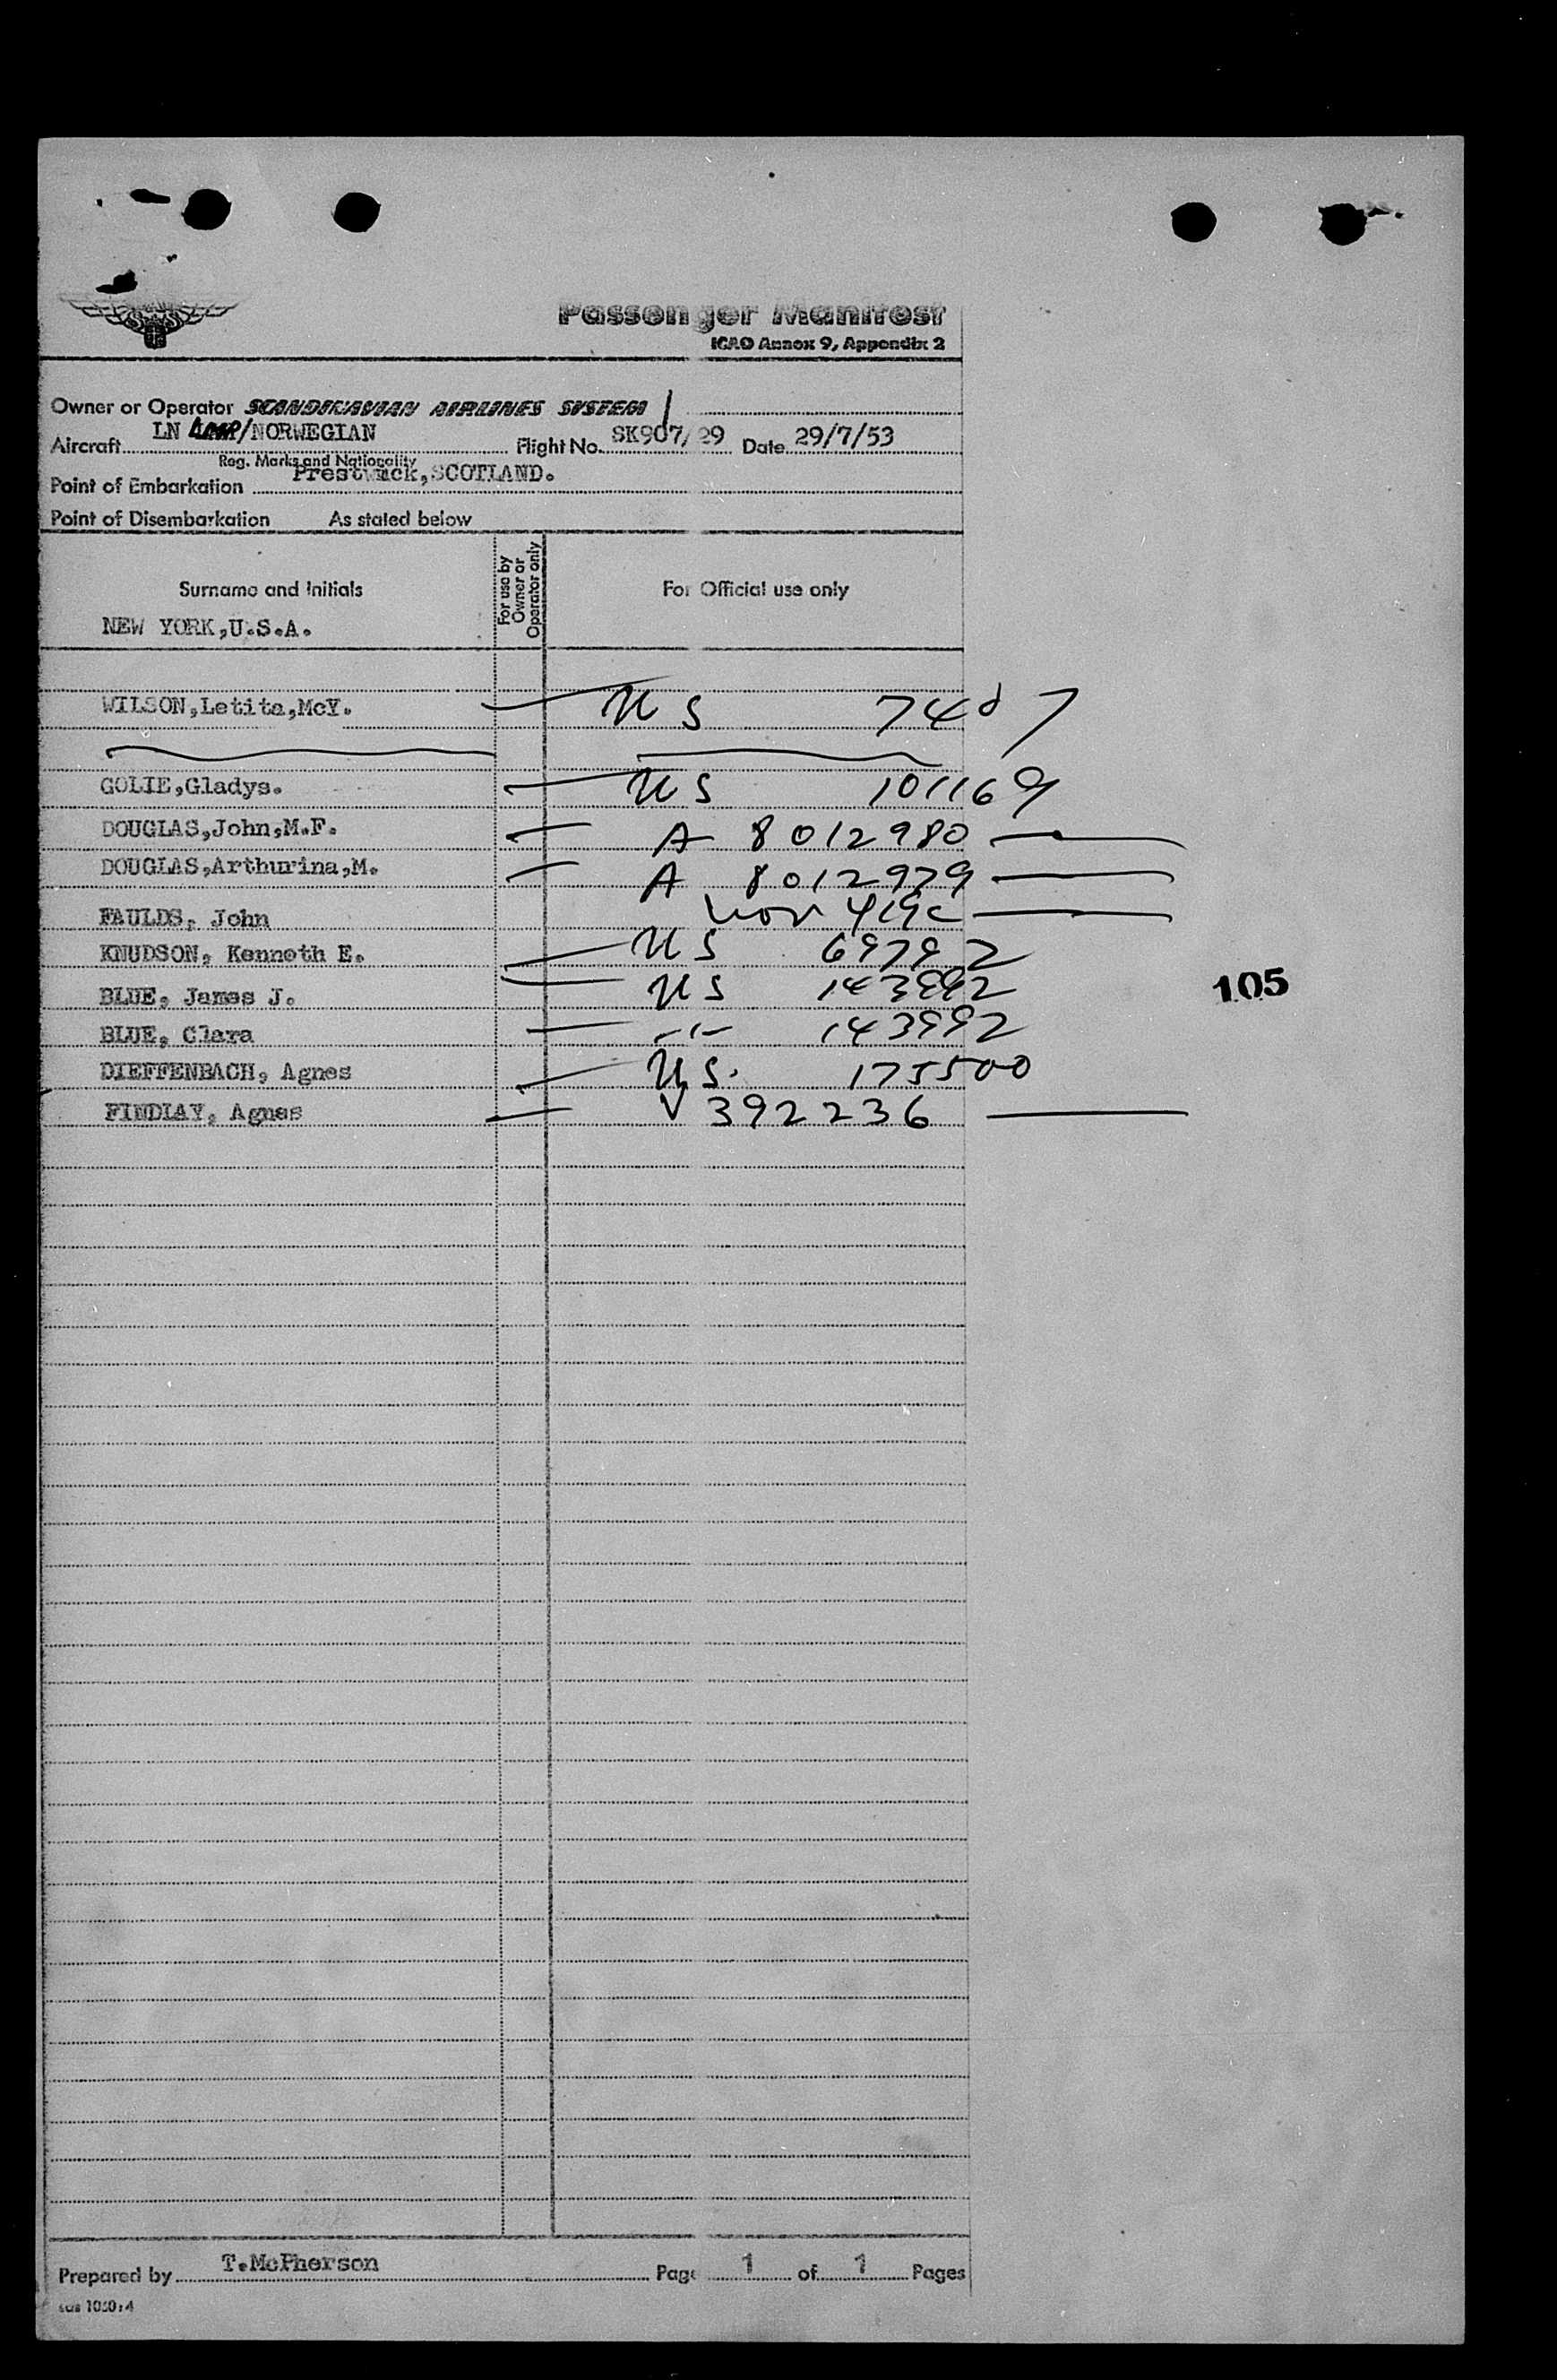 Passenger Manifest
ICAO Annex 9, Appendix 2
Owner or Operator SCANDINAVIAN AIRLINES SYSTEM
Aircraft LN /NORWEGIAN Flight No. SK907/29 Date 29/7/53
Reg. Marks and Nationality
Point of Embarkation Prestwick,SCOTLAND.
Point of Disembarkation As stated below
Surname and Initials
For use by Owner or Operator only
For Official use only
NEW YORK,U.S.A.
WILSON,Letita,McY. US
GOLIE,Gladys. US 101169
DOUGLAS,John,M.F. A 8012980
DOUGLAS,Arthurina,M. A 8012979
FAULDS, John
KNUDSON, Kenneth E. US 69792
BLUE, James J. US 143992
BLUE, Clara -"- 143992
DIEFFENBACH, Agnes US. 175500
FINDLAY, Agnes V 392236
105
Prepared by T.McPherson Page 1 of 1 Pages